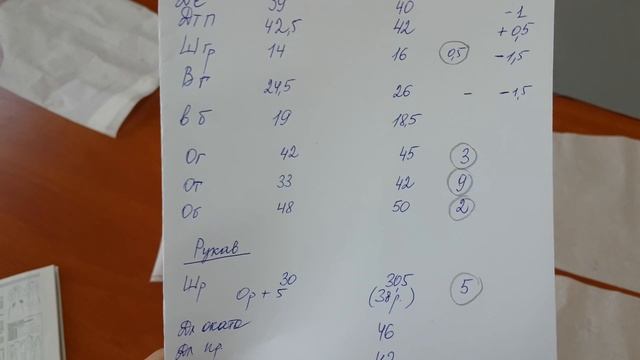 Дс 39 40 -1
ДтП 42,5 42 +0,5
Шгр 14 16 0,5 -1,5
Вг 24,5 26 - -1,5
Вб 19 18,5
Ог 42 45 3
От 33 42 9
Об 48 50 2
Рукав
Шр 30 30,5 5
Ор + 5 (38р.)
Дл оката 46
Дл пр.